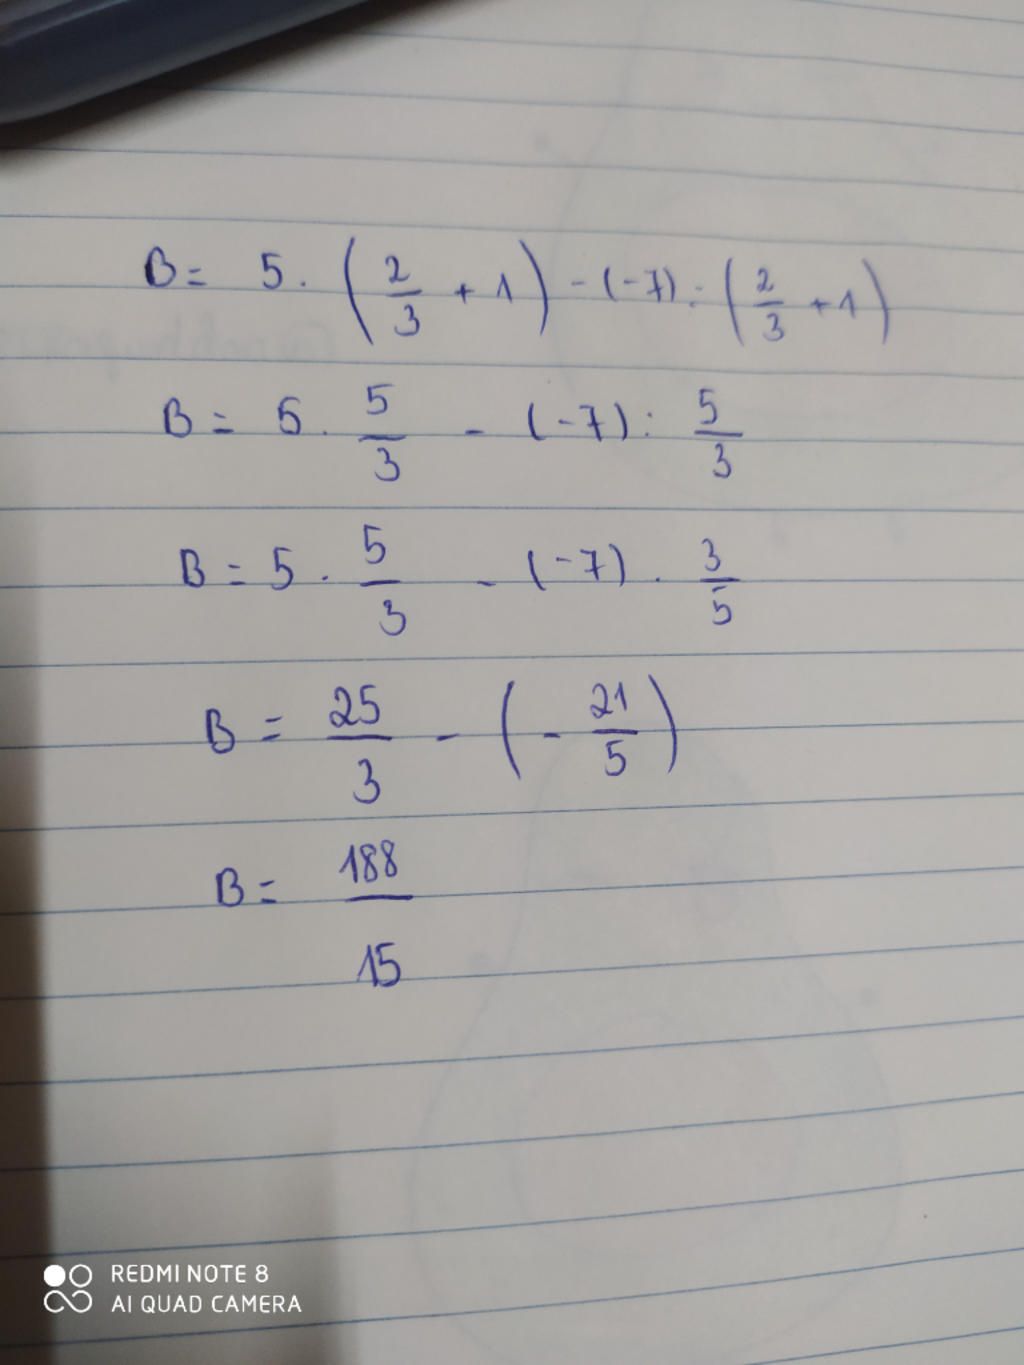 B = 5 . (2/3 + 1) - (-7) : (2/3 + 1)
B = 5 . 5/3 - (-7) : 5/3
B = 5 . 5/3 - (-7) . 3/5
B = 25/3 - (- 21/5)
B = 188/15
REDMI NOTE 8
AI QUAD CAMERA